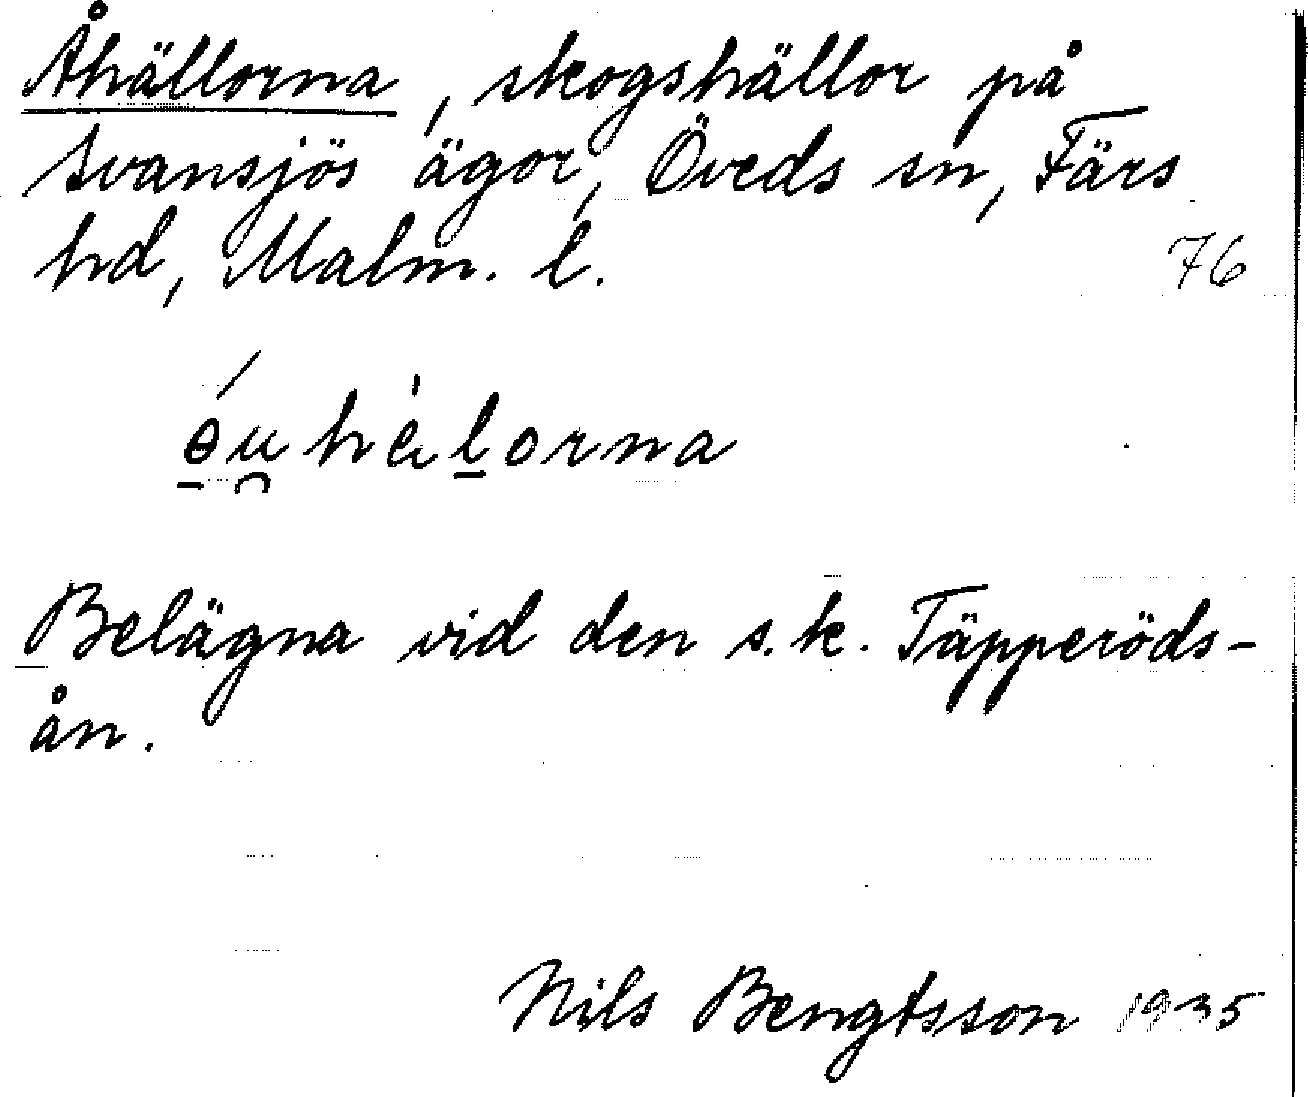 Åhällorna, skogshällor på
Svansjös ägor, Öveds sn, Färs
hd, Malm. l. 76
Belägna vid den s.k. Täpperöds-
ån.
Nils Bengtsson 1935